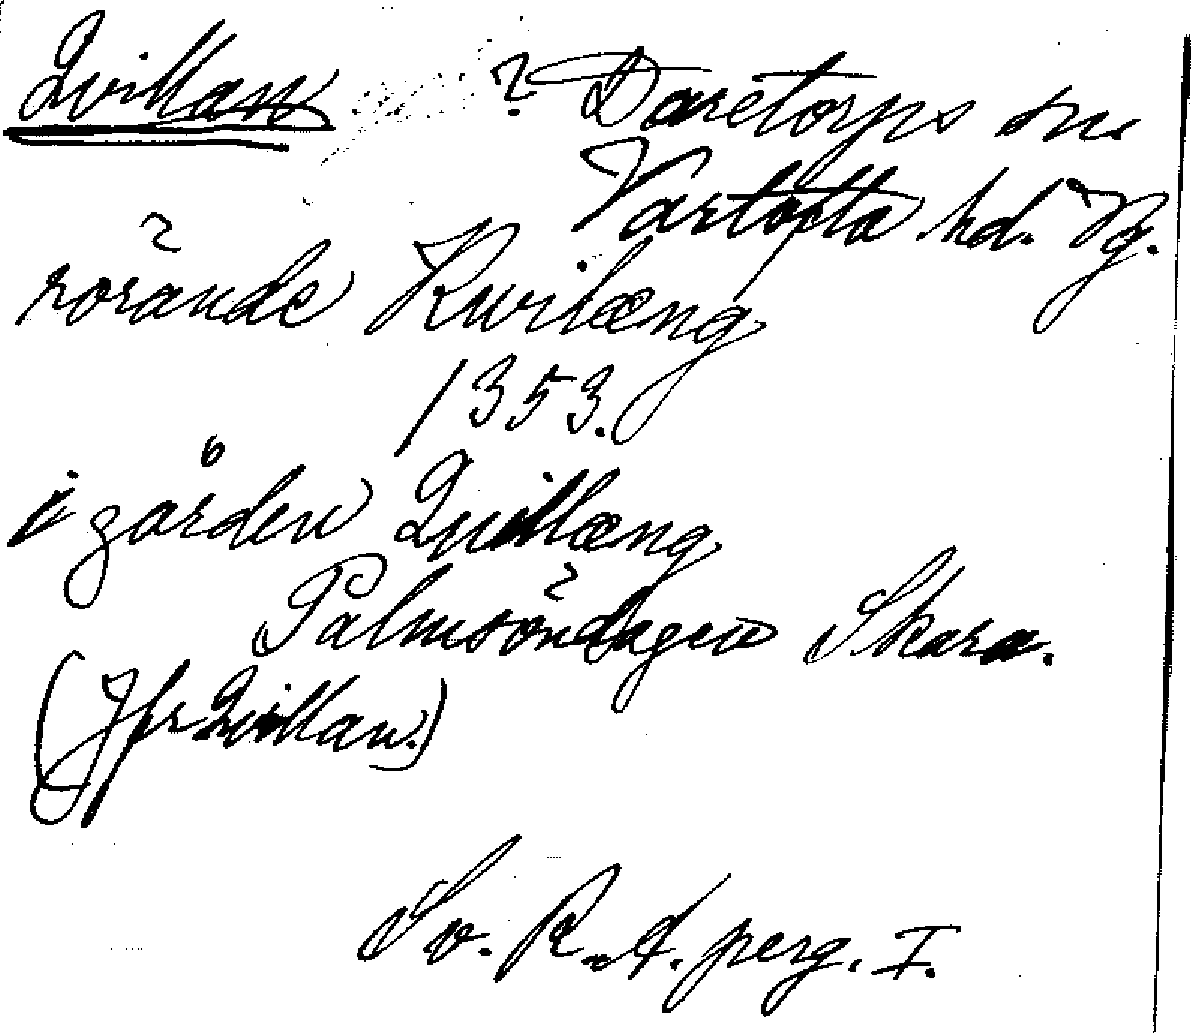 Qvillan ? Daretorps sn.
Vartofta hd. Vg.
rörande Kwilæng
1353.
i gården Quillæng
Palmsöndagen Skara.
(Jfr Qvillan.)
Sv. R.A. perg. I.